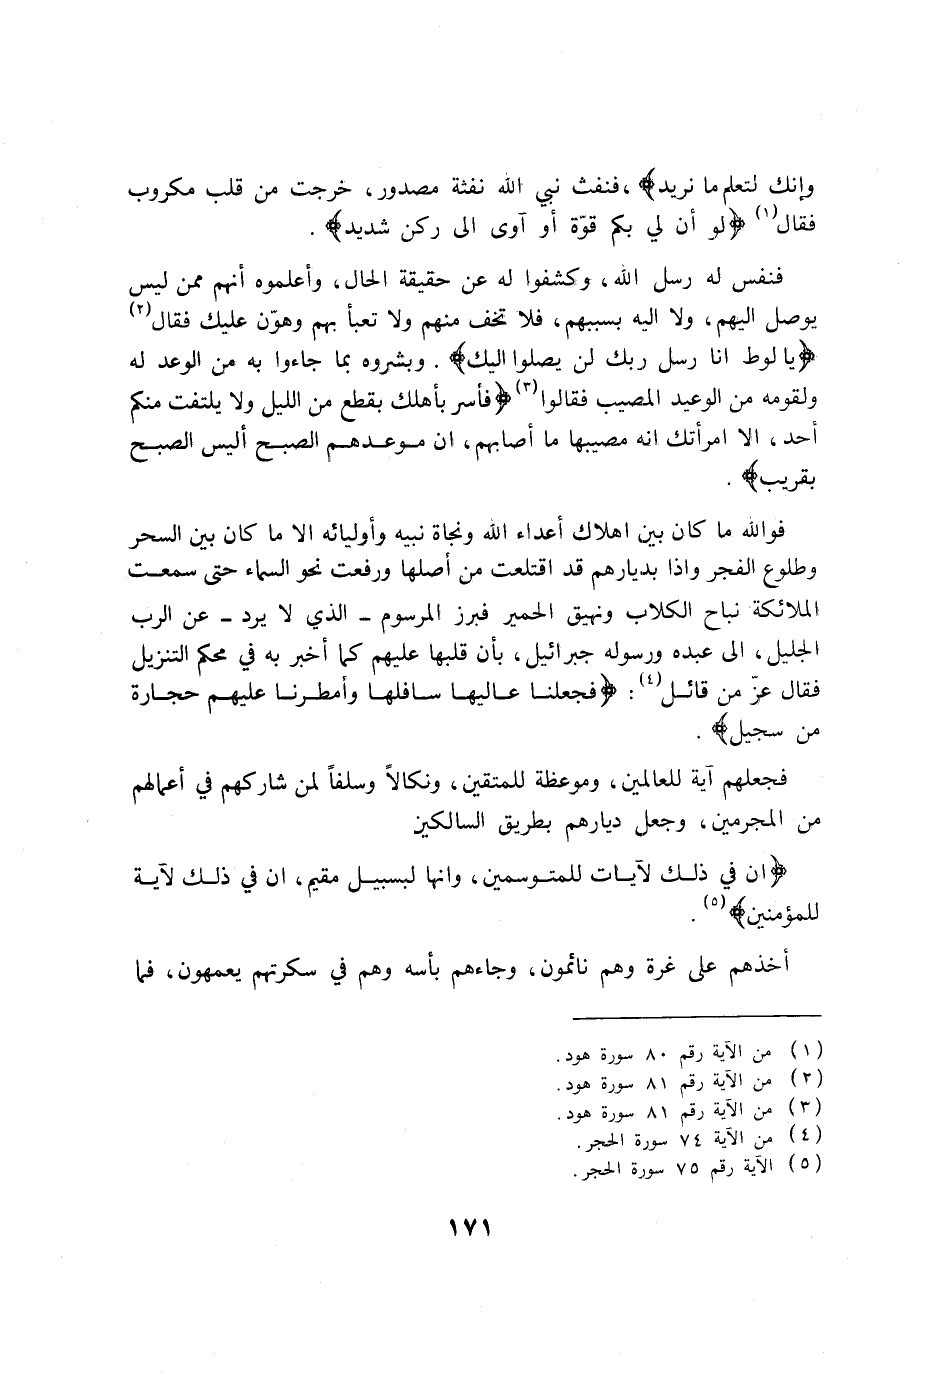 وإنك لتعلم ما نريد﴾ ،فنفث نبي الله نفثة مصدور، خرجت من قلب مكروب
فقال(١) ﴿لو أن لي بكم قوّة أو آوى الى ركن شديد﴾ .
فنفس له رسل الله، وكشفوا له عن حقيقة الحال، وأعلموه أنهم ممن ليس
يوصل اليهم، ولا اليه بسببهم، فلا تخف منهم ولا تعبأ بهم وهوّن عليك فقال(٢)
﴿يا لوط انا رسل ربك لن يصلوا اليك﴾ . وبشروه بما جاءوا به من الوعد له
ولقومه من الوعيد المصيب فقالوا(٣) ﴿فأسر بأهلك بقطع من الليل ولا يلتفت منكم
أحد، الا امرأتك انه مصيبها ما أصابهم، ان موعدهم الصبح أليس الصبح
بقريب﴾ .
فوالله ما كان بين اهلاك أعداء الله ونجاة نبيه وأوليائه الا ما كان بين السحر
وطلوع الفجر واذا بديارهم قد اقتلعت من أصلها ورفعت نحو السماء حتى سمعت
الملائكة نباح الكلاب ونهيق الحمير فبرز المرسوم ـ الذي لا يرد ـ عن الرب
الجليل، الى عبده ورسوله جبرائيل، بأن قلبها عليهم كما أخبر به في محكم التنزيل
فقال عزّ من قائل(٤): ﴿فجعلنا عاليها سافلها وأمطرنا عليهم حجارة
من سجيل﴾ .
فجعلهم آية للعالمين، وموعظة للمتقين، ونكالاً وسلفاً لمن شاركهم في أعمالهم
من المجرمين، وجعل ديارهم بطريق السالكين
﴿ان في ذلك لآيات للمتوسمين، وانها لبسبيل مقيم، ان في ذلك لآية
للمؤمنين﴾(٥).
أخذهم على غرة وهم نائمون، وجاءهم بأسه وهم في سكرتهم يعمهون، فما
(١) من الآية رقم ٨٠ سورة هود.
(٢) من الآية رقم ٨١ سورة هود.
(٣) من الآية رقم ٨١ سورة هود.
(٤) من الآية ٧٤ سورة الحجر.
(٥) الآية رقم ٧٥ سورة الحجر.
١٧١